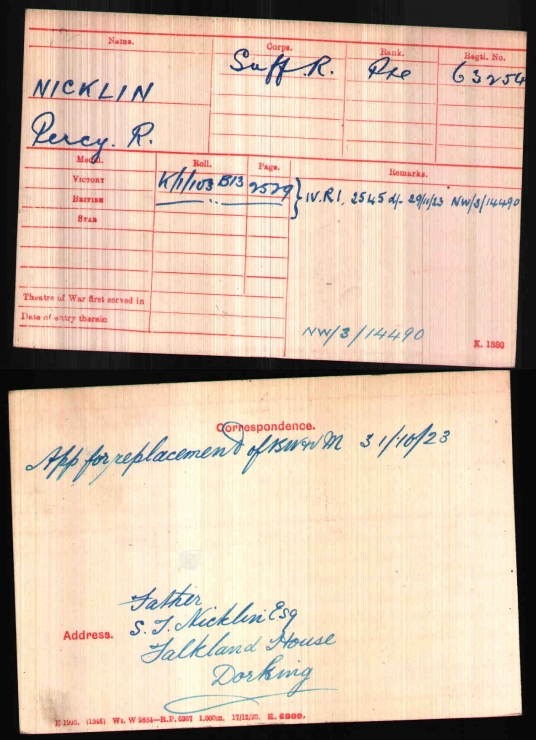 Name.
Corps.
Rank.
Regtl. No.
Suff. R.
Pte
63254
NICKLIN
Percy. R.
Medal.
Roll.
Page.
Remarks.
VICTORY
K/1/103 B13
2529
IV. R1, 2545 d/- 29/11/23 NW/3/14490
BRITISH
STAR
Theatre of War first served in
Date of entry therein
NW/3/14490
K. 1380
Correspondence.
App for replacement of BW & M 31/10/23
Father
S. J. Nicklin Esq
Address.
Falkland House
Dorking
(1346) Wt. W 2654—R.P. 6267 1,000m. 17/12/20. K. 6989.